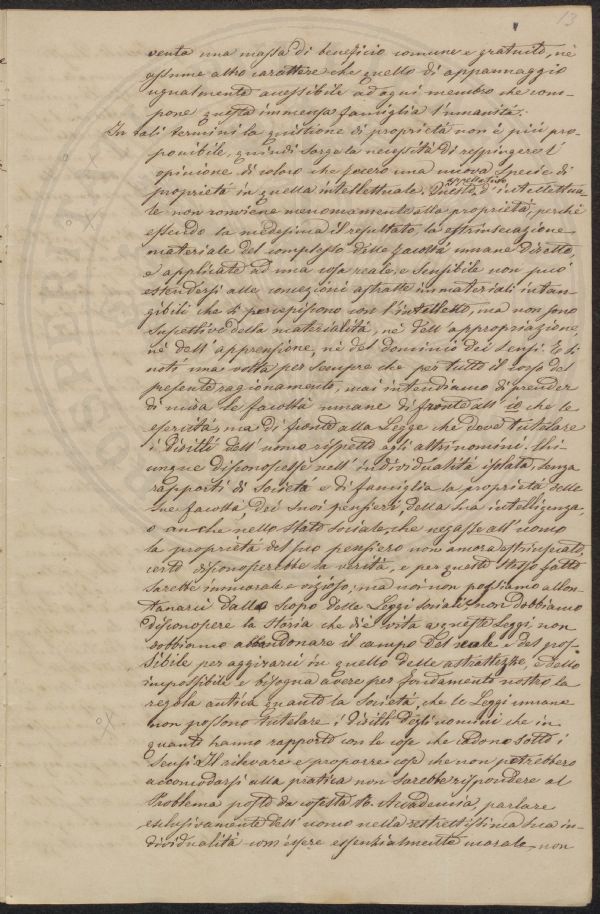 13
venta una massa di beneficio comune e gratuito, né
assume altro carattere che quello di appannaggio
ugualmente accessibile ad ogni membro che com-
pone questa immensa famiglia l'umanitá.
In tali termini la quistione di proprietá non é piú pro-
ponibile, quindi sorge la necessitá di respingere l'
opinione di coloro che fecero una nuova specie di
proprietá in quella intellettuale. Questa appellazione d'intellettua
le non conviene menomamente alla proprietá, perché
essendo la medesima il resultato, la estrinsecazione
materiale del complesso delle facoltá umane diretto,
e applicate ad una cosa reale, e sensibile non puó
estendersi alle concezioni astratte immateriali intan-
gibili che si percepiscono con l'intelletto, ma non sono
suscettive della materialitá, né dell'appropriazione
né dell'apprensione, né del dominio dei sensi. E si
noti una volta per sempre che per tutto il corso del
presente ragionamento, mai intendiamo di prender
di mira le facoltá umane di fronte all'io che le
esercita, ma di fronte alla Legge che deve tutelare
i diritti dell'uomo rispetto agli altri uomini. Chi-
unque disconoscesse nell'individualitá isolata, senza
rapporti di Societá e di famiglia la proprietá delle
sue facoltá dei suoi pensieri, della sua intelligenza,
o anche nello stato sociale, che negasse all'uomo
la proprietá del suo pensiero non ancora estrinsecato,
certo disconoscerebbe la veritá, e per questo stesso fatto
sarebbe immorale e vizioso; ma noi non possiamo allon-
tanarci dallo scopo delle Leggi sociali; non dobbiamo
disconoscere la storia che dié vita a queste Leggi, non
dobbiamo abbandonare il campo del reale e del pos-
sibile per aggirarci in quello delle astrattezze, e dello
impossibile e bisogna avere per fondamento nostro la
regola antica quanto la Societá, che le Leggi umane
non possono tutelare i diritti degli uomini che in
quanto hanno rapporto con le cose che cadono sotto i
sensi. Il rilevare e proporre cose che non potrebbero
accomodarsi alla pratica non sarebbe rispondere al
Problema posto da cotesta Accademia, parlare
esclusivamente dell'uomo nella ristrettissima sua in-
dividualitá com'essere essenzialmente morale, non